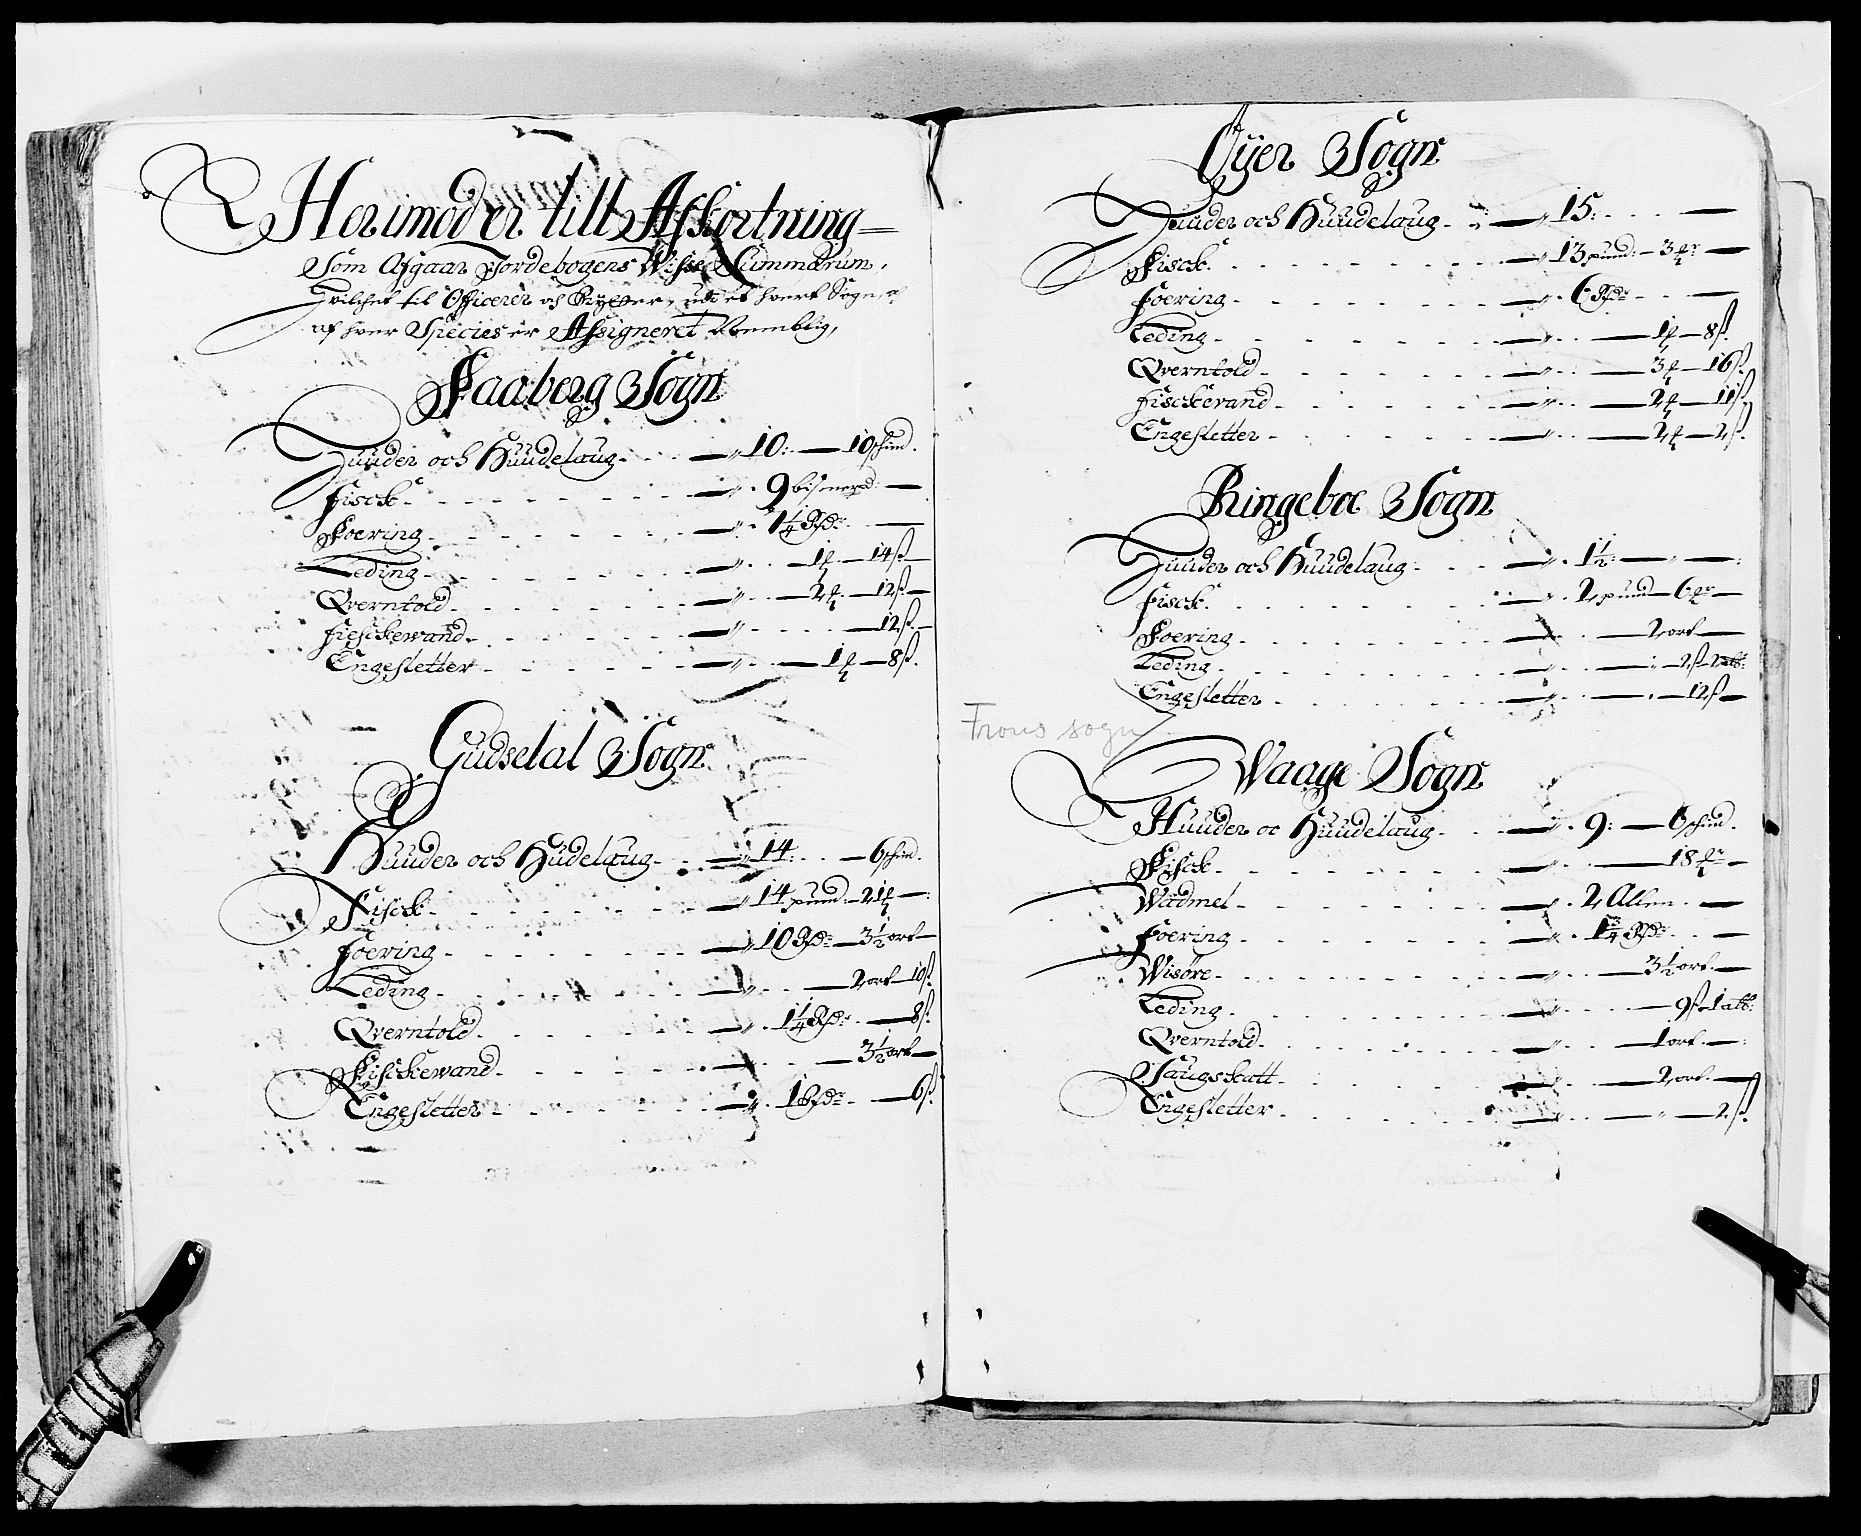 Herimod er till Afkortning
Som Afgaar Jordebogens Wisse Summarum,
Hvilchet til Officerer och Rytter, udi et hvert Sogn, og
af hver Species er Assigneret Nemblig,
Faaberg Sogn
Huuder och Huudelaug - 10: - 10 schind.
Fisck - 9 bismerpd: -
Foering - 1¼ Rdr -
Leding - 1 ₰ - 14 ß -
Qverntold - 2 ₰ - 12 ß -
Fisckewand - 12 ß -
Engesletter - 1 ₰ - 8 ß.
Gudsdal Sogn
Huuder och Hudelaug - 14: - 6 schind.
Fisck - 14 pund - 21 ₰ -
Foering - 10 Rdr - 3½ ort -
Leding - 2 ort - 10 ß.
Qverntold - 1¼ Rdr - 8 ß.
Fisckewand - 3½ ort -
Engesletter - 1 Rdr - 6 ß.
Öyer Sogn
Huuder och Huudelaug - 15: -
Fisck - 13 pund: - 3 ₰r -
Foering - 6 Rdr -
Leding - 1 ₰ - 8 ß.
Qverntold - 3 ₰ - 16 ß.
Fisckevand - 2 ₰ - 11 ß.
Engesletter - 2 ₰ - 2 ß.
Ringeboe Sogn
Huuder och Huudelaug - 1½: -
Fisck - 2 pund - 6 ₰r -
Foering - 2 ort -
Leding - 2 ß 2 alb:
Engesletter - 12 ß -
Frons sogn
Waage Sogn
Huuder oc Huudelaug - 9: - 6 schind.
Fisck - 18 ₰r -
Wadmel - 2 Alen -
Foering - 1¾ Rdr -
Wisøre - 3½ ort -
Leding - 9 ß 1 alb:
Qverntold - 1 ort -
Laugskatt - 2 ort -
Engesletter - 2 ß.